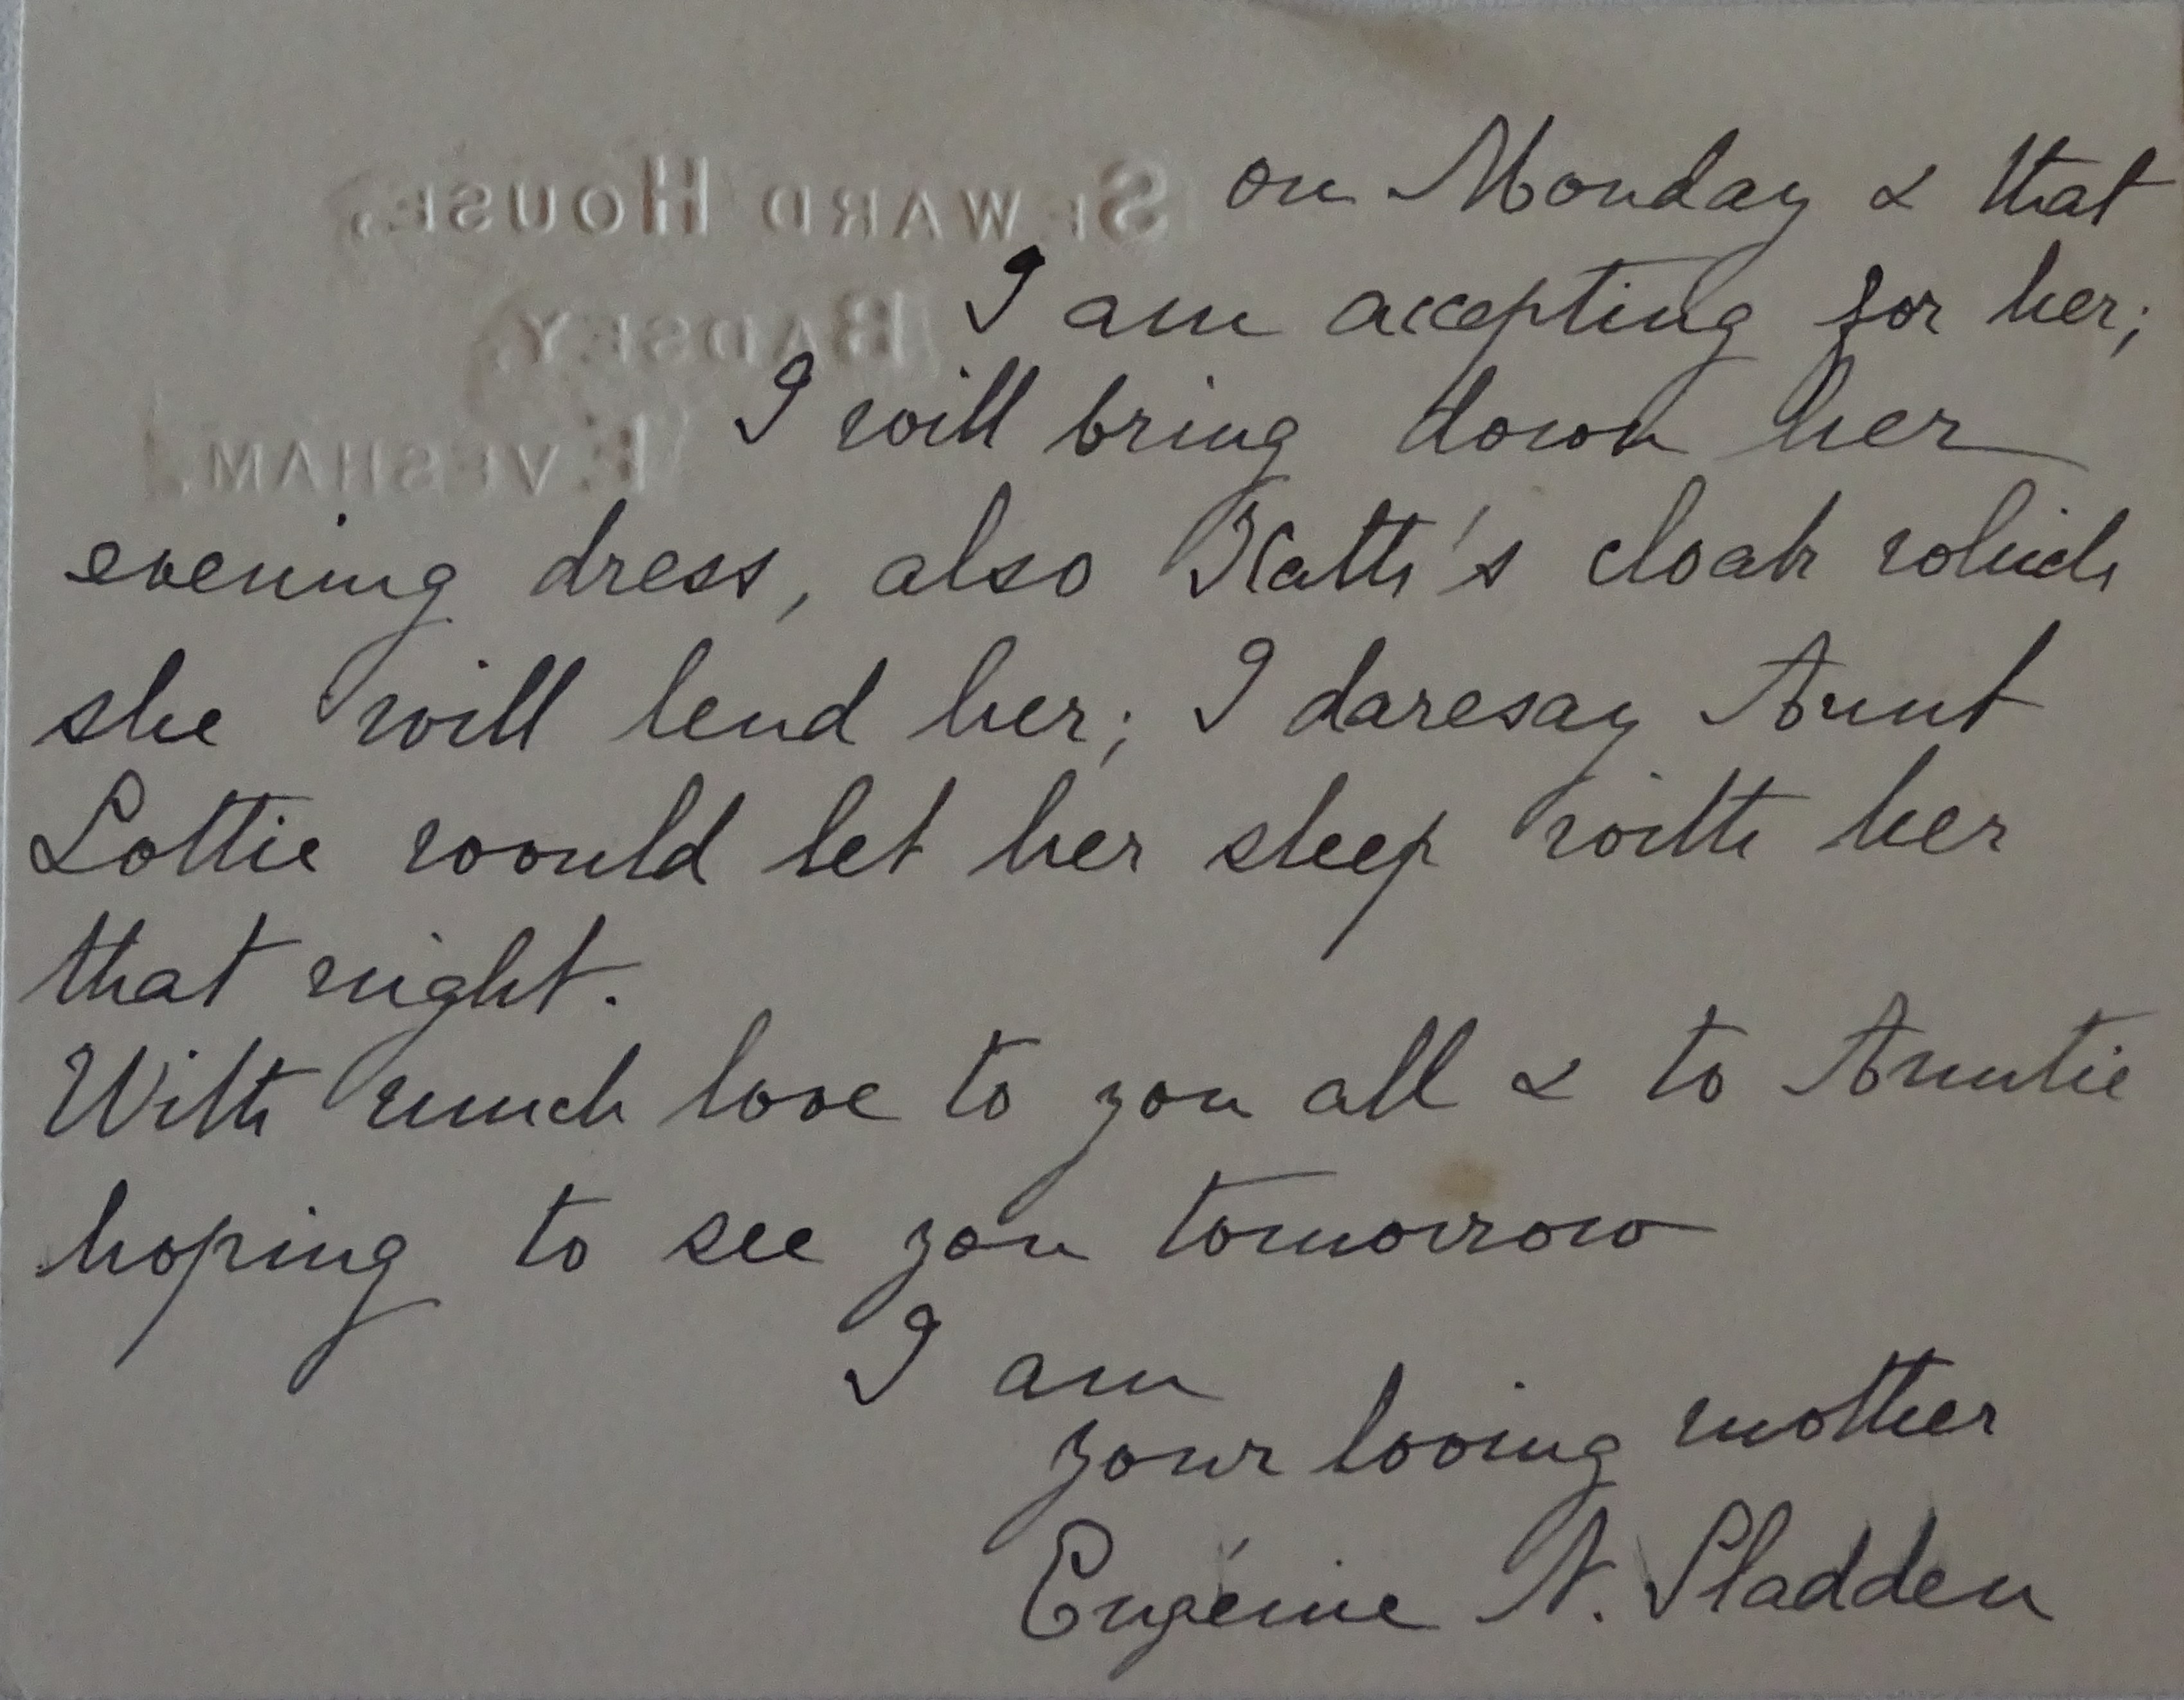 SEWARD HOUSE,
BADSEY,
EVESHAM.
on Monday & that
I am accepting for her;
I will bring down her
evening dress, also Kath's cloak which
she will lend her; I daresay Aunt
Lottie would let her sleep with her
that night.
With much love to you all & to Auntie
hoping to see you tomorrow
I am
your loving mother
Eugénie N. Sladden